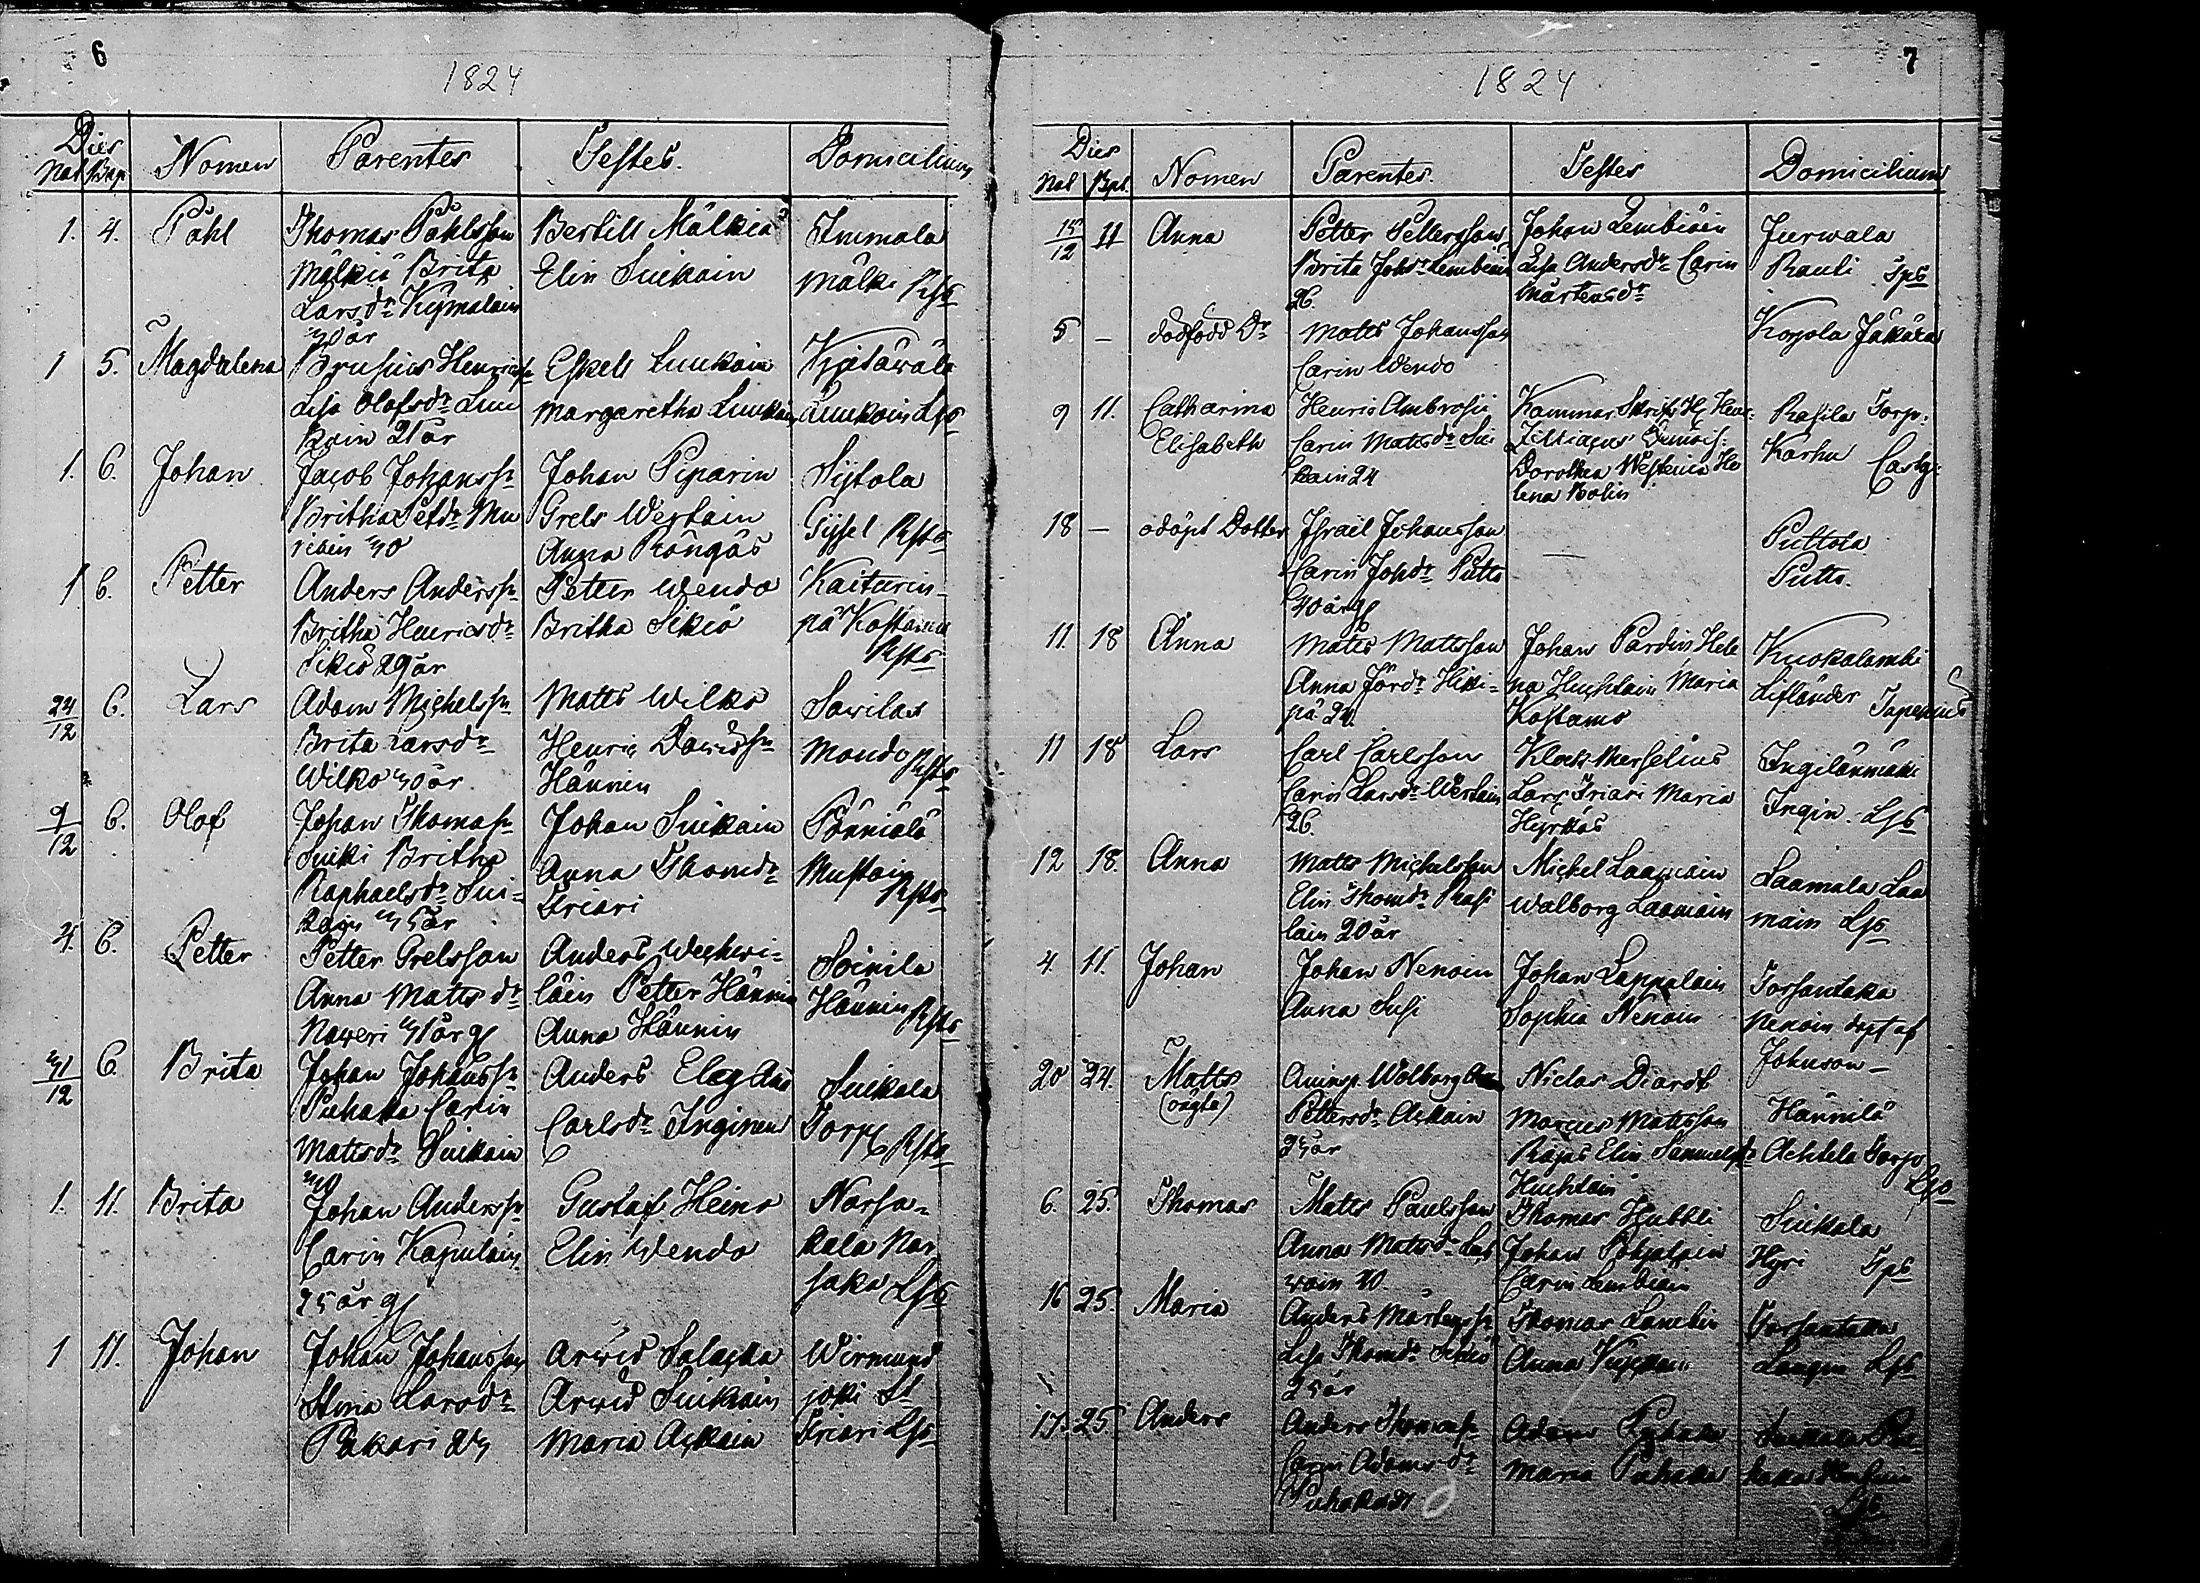 6
1824
Dies
Nat Bap
Nomen
Parentes
Testes.
Domicilium
1. 4. Påhl
Thomas Påhlsson
Mälkiä Brita
Larsdr Kymalain
40 år
Bertill Mälkiä
Elin Suikain
Immola
Mälki Rsts
1 5. Magdalena
Brusius Henrics
Lisa Olofsdr Luu
kain 21 år
Eskell Luukain
Margaretha Luukain
Luukain Lps
1. 6. Johan
Jacob Johanssn
Britha Petdr Mu
40
Johan Piparin
Grels Wertain
Anna Rängäs
Sijtola
Gijsel Rsts
1 6. Petter
Anders Anderssn
Britha Henricsdr
Sikiö 29 år
Petter Wendo
Britha Sikiö
Kaiturin-
pä Kostamo
Rsts
24/12 6. Lars
Adam Michelssn
Brita Larsdr
Wilko 40 år
Matts Wilko
Henric Davidssn
Hännin
Sawilax
Mondo Rsts
9/12 6. Olof
Johan Thomasn
Suiki Britha
Raphaelsdr Sui-
kain 45 år
Johan Suikain
Anna Thomdr
Friari
Pönniälä
Mustain
Rsts
4. 6. Petter
Petter Grelsson
Anna Matts dr
Naveri 41 år gl
Anders Weckwi-
läin Petter Hännin
Anna Hännin
Soinila
Hännin Rsts
41/12 6. Brita
Johan Johanssn
Puhaka Carin
Mattsdr Suikain
40
Anders Eleg Ana
Carlsdr Inginen
Suikala
Torp Rsts
1. 11. Brita
Johan Anderssn
Carin Kapulain
25 år gl
Gustaf Heino
Elin Wendo
Norsa-
kala Nor
saka Lps
1 11. Johan
Johan Johansson
Stina Larsdr
Pakari 24
Arvid Salacka
Arvid Suikain
Maria Ackain
Wirmund
joki St
Friari Lps
7
1824
Dies
Nat Bpt.
Nomen
Parentes.
Testes
Domicilium
15/12 11 Anna
Petter Pettersson
Brita Johdr Lembiäin
26.
Johan Lembiäin
Lisa Andersdr Carin
Mårtensdr
Jurwala
Rauti Lps
5. — dödfödd Dr
Matts Johansson
Carin Wendo
Korjola Jäkärä
9 11. Catharina
Elisabeth
Henric Ambrosii
Carin Mattsdr Sui
kain 24
Kammar Skrif Hr Henr:
Dorothea Westenia He
lena Bolin
Rasila Torp:
Karhu
18 — odöpt Dotter
Israel Johansson
Carin Johdr Putto
40 år gl
—
Puttola
Putto.
11. 18 Anna
Matts Mattsson
Anna Jördr Hiki-
pä 24.
Johan Pardin Hele
na Huchtain Maria
Kostamo
Kuokalambi
Lifländer
11 18 Lars
Carl Carlsson
Carin Larsdr Wertain
26.
Klock. Marselius
Lars Friari Maria
Hyrkäs
Ingilänmäki
Ingin. Lps
12 18. Anna
Matts Michelsson
Elin Thomdr Rasi
lain 20 år
Michel Laamain
Walborg Laamain
Laamala Laa
main Lps
4. 11. Johan
Johan Nenoin
Anna Susi
Johan Lappalain
Sophia Nenoin
Torsantaka
Nenoin döpt af
Johnson —
20 24. Matts
(oägta)
Walborg
Pettersdr Ackain
24 år
Niclas Diardt
Marcus Mattsson
Rajas Elin Samuelsdr
Huchtain
Hännilä
Achtela Torp
Lps
6. 25. Thomas
Matts Paulsson
Anna Mattsdr Las
wain 20.
Thomas Hubbli
Johan Pohjalain
Carin Lembiäin
Suikala
Hyri Lps
16 25. Maria
Anders Mårtenssn
Lisa Thomdr Sikiö
25 år
Thomas Lambin
Anna
Torsantaka
Lambin Lps
17. 25. Anders
Anders Thomassn
Carin Adams dr
Puhaka 21
Adam Puhaka
Maria Puhaka
Suikala Pu
haka
Lps